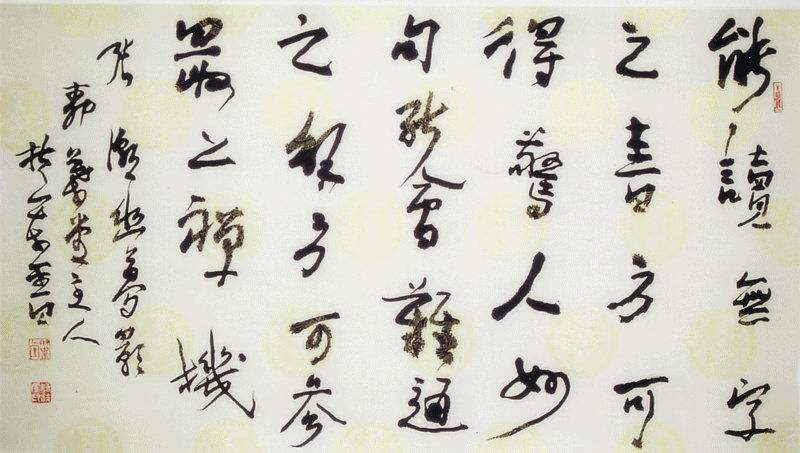 能讀無字
之書方可
得驚人妙
句能會難通
之解方可參
最上禪機
張潮幽夢影
主人